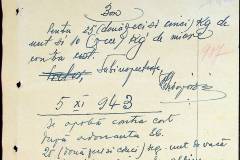 Bon
25 (două zeci si cinci) Kg de
unt si 10 (zece) Kg de miere
contra cost.
Subinspector,
5 XI 943
Se aprobă contra cost
după 26.
25 (două zeci si cinci) Kg. unt de vacă